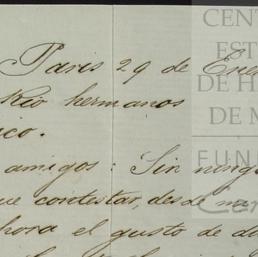 Paris 29 de Ene
Rio hermanos
ico.
amigos: Sin ning
ue contestar, desde m
hora el gusto de d
CENT
EST
DE H
DE M
FUN
Car